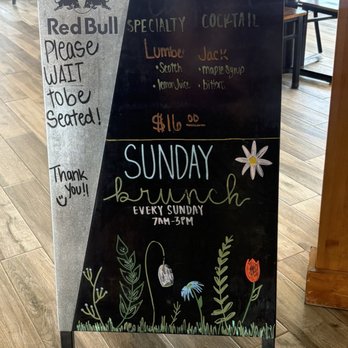 Red Bull
Please
WAIT
to be
Seated!
Thank
You!!
SPECIALTY COCKTAIL
Lumber Jack
• Scotch • maple syrup
• lemon Juice • bitters
$16.00
SUNDAY
brunch
EVERY SUNDAY
7AM-3PM